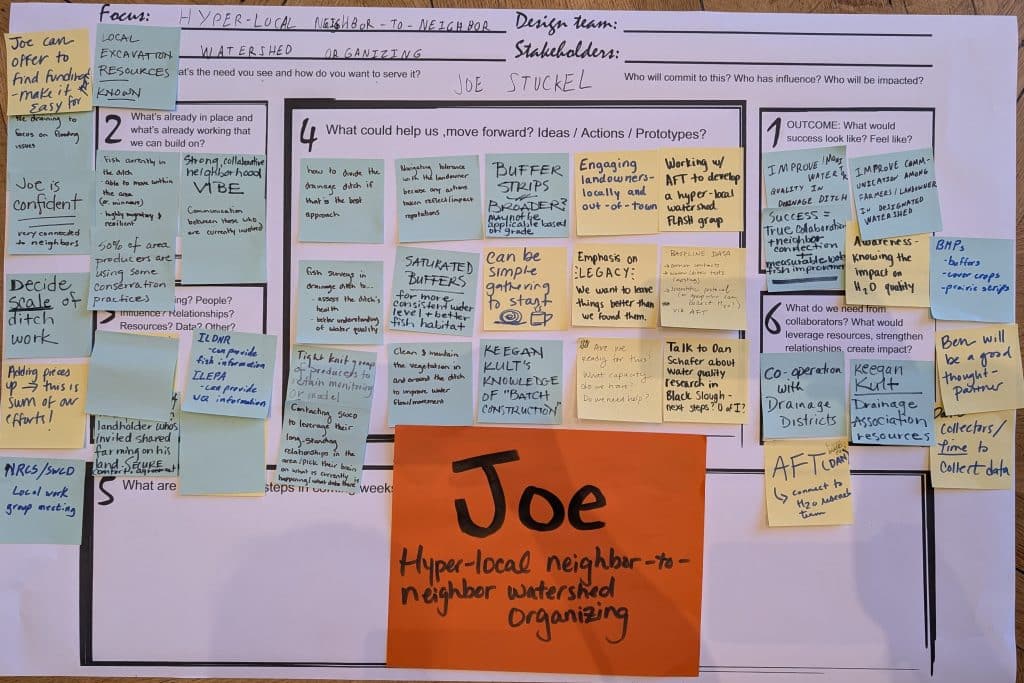 Focus: HYPER-LOCAL NEIGHBOR-TO-NEIGHBOR
WATERSHED ORGANIZING
Design team:
Stakeholders:
what's the need you see and how do you want to serve it?
JOE STUCKEL
Who will commit to this? Who has influence? Who will be impacted?
Joe can
offer to
find funding
-make it
Easy for
LOCAL
EXCAVATION
RESOURCES
KNOWN
the draining to
focus on flooding
issues
Joe is
confident
very connected
to neighbors
Decide
scale of
ditch
work
Adding pieces
up → this is
sum of our
efforts!
NRCS/SWCD
Local work
group meeting
2 What's already in place and
what's already working that
we can build on?
Fish currently in
the ditch
- able to move within
the area
(or minnows)
- highly migratory &
resilient
Strong, collaborative
neighborhood
VIBE
Communication
between those who
are currently involved
50% of area
producers are
using some
conservation
practices
3
People?
Influence / Relationships?
Resources? Data? Other?
ILDNR
- can provide
fish information
ILEPA
- can provide
WQ information
landholder who's
invited shared
farming on his
land. SECURE
4 What could help us ,move forward? Ideas / Actions / Prototypes?
how to divide the
drainage ditch if
that is the best
approach
Navigating tolerance
with the landowner
because any actions
taken reflect/impact
reputations
BUFFER
STRIPS
BROADER?
may not be
applicable based
on grade
Engaging
landowners-
locally and
out-of-town
Working w/
AFT to develop
a hyper-local
watershed
FLASH group
Fish surveys in
drainage ditch to...
- assess the ditch's
health
- better understanding
of water quality
SATURATED
BUFFERS
for more
consistent water
level + better
fish habitat
Can be
simple
gathering
to start
Emphasis on
LEGACY:
We want to leave
things better than
we found them.
BASELINE DATA
via AFT
Tight knit group
of producers to
retain monitoring
or model
Contacting SWCD
to leverage their
long-standing
relationships in the
area/pick their brain
on what is currently
happening/what data there
Clean & maintain
the vegetation in
and around the ditch
to improve water
flow/movement
KEEGAN
KULT'S
KNOWLEDGE
OF "BATCH
CONSTRUCTION"
Are we
ready for this?
What capacity
do we have?
Do we need help?
Talk to Dan
Schafer about
water quality
research in
Black Slough-
next steps?
1 OUTCOME: What would
success look like? Feel like?
IMPROVE
WATER
QUALITY IN
DRAINAGE DITCH
IMPROVE COMM-
UNICATION AMONG
FARMERS/LANDOWNER
IN DESIGNATED
WATERSHED
Success =
True Collaboration
+ neighbor
connection
+ measurable
fish improvement
Awareness-
knowing the
impact on
H2O quality
BMPs
- buffers
- cover crops
- prairie strips
6 What do we need from
collaborators? What would
leverage resources, strengthen
relationships, create impact?
Co-operation
with
Drainage
Districts
Keegan
Kult
Drainage
Association
resources
Ben will
be a good
thought-
partner
collectors/
time to
collect data
AFT (DAN
↳ connect to
H2O research
team
5 What are steps in coming weeks
Joe
Hyper-local neighbor-to-
neighbor watershed
Organizing